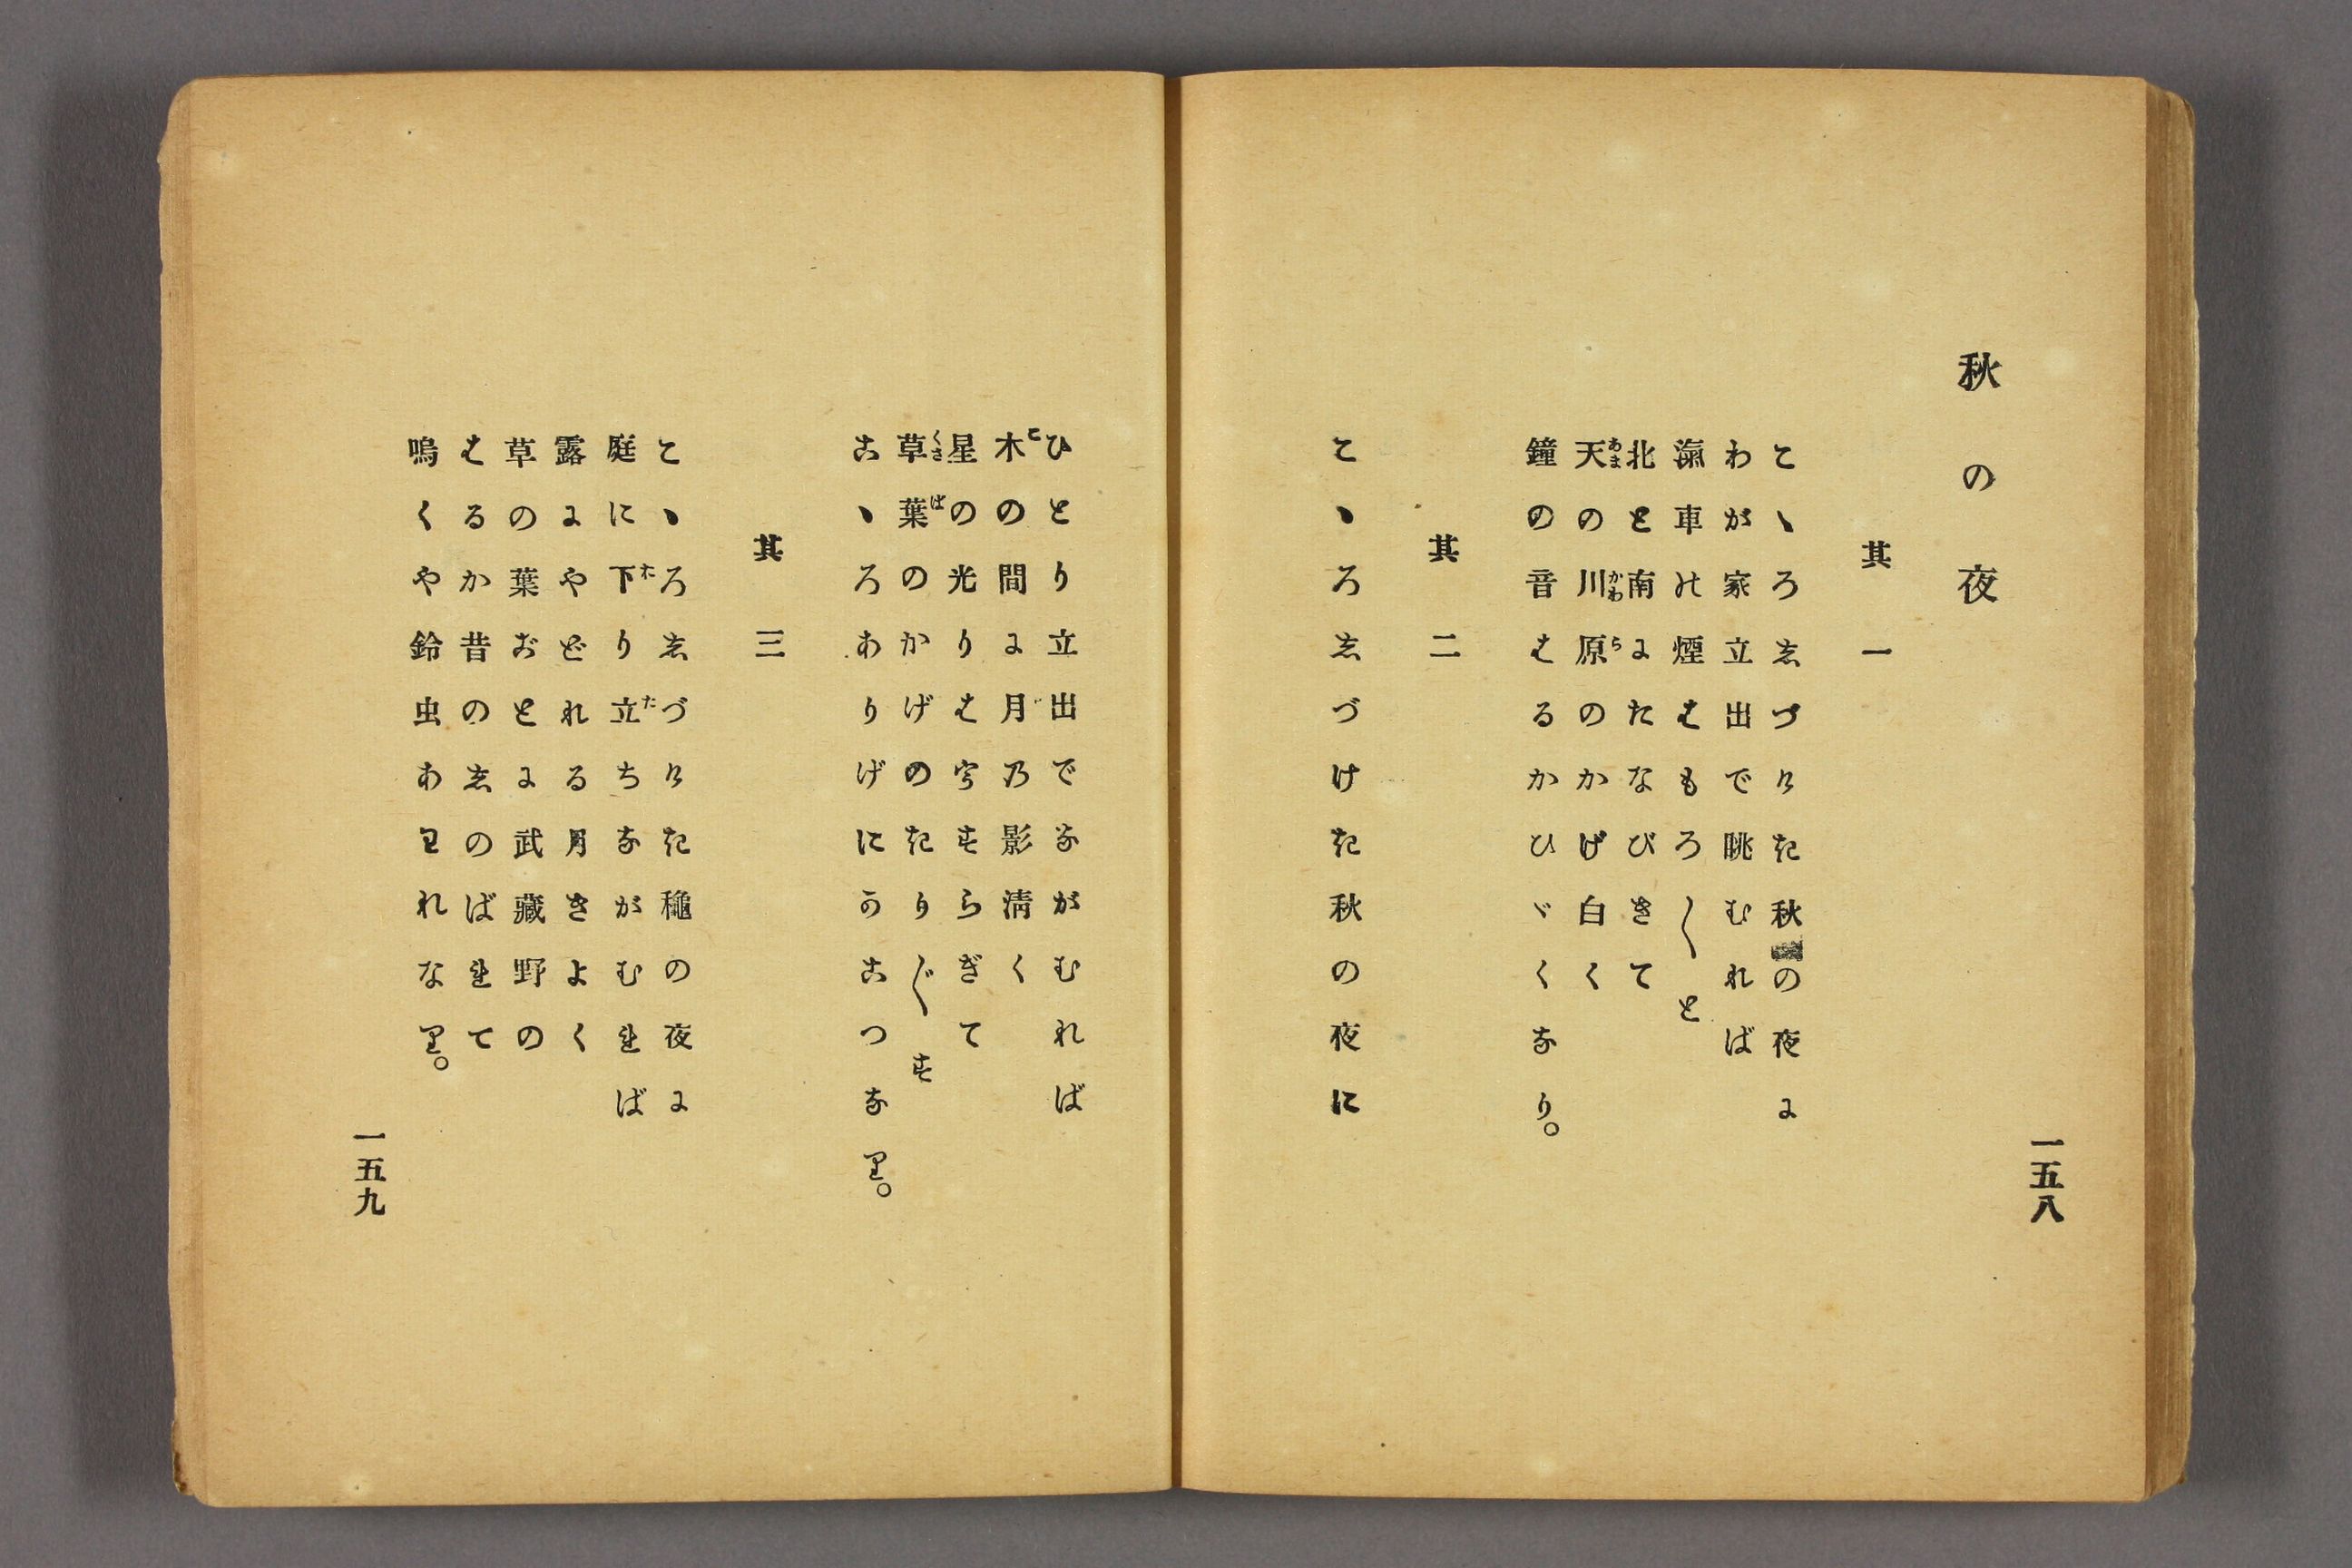 一五八
秋の夜
其一
こゝろしづけき秋の夜に
わが家立出で眺むれば
滊車の煙はもろ〳〵と
北と南にたなびきて
天の川原のかげ白く
鐘の音はるかひゞくなり。
其二
こゝろしづけき秋の夜に
ひとり立出でながむれば
木の間に月乃影清く
星の光りはうすらぎて
草葉のかげのきり〴〵す
こゝろありげにうこつなり。
其三
こゝろしづけき龝の夜に
庭に下り立ちながむれば
露にやどれる月きよく
草の葉おとに武藏野の
はるか昔のしのばれて
鳴くや鈴虫あはれなり。
一五九